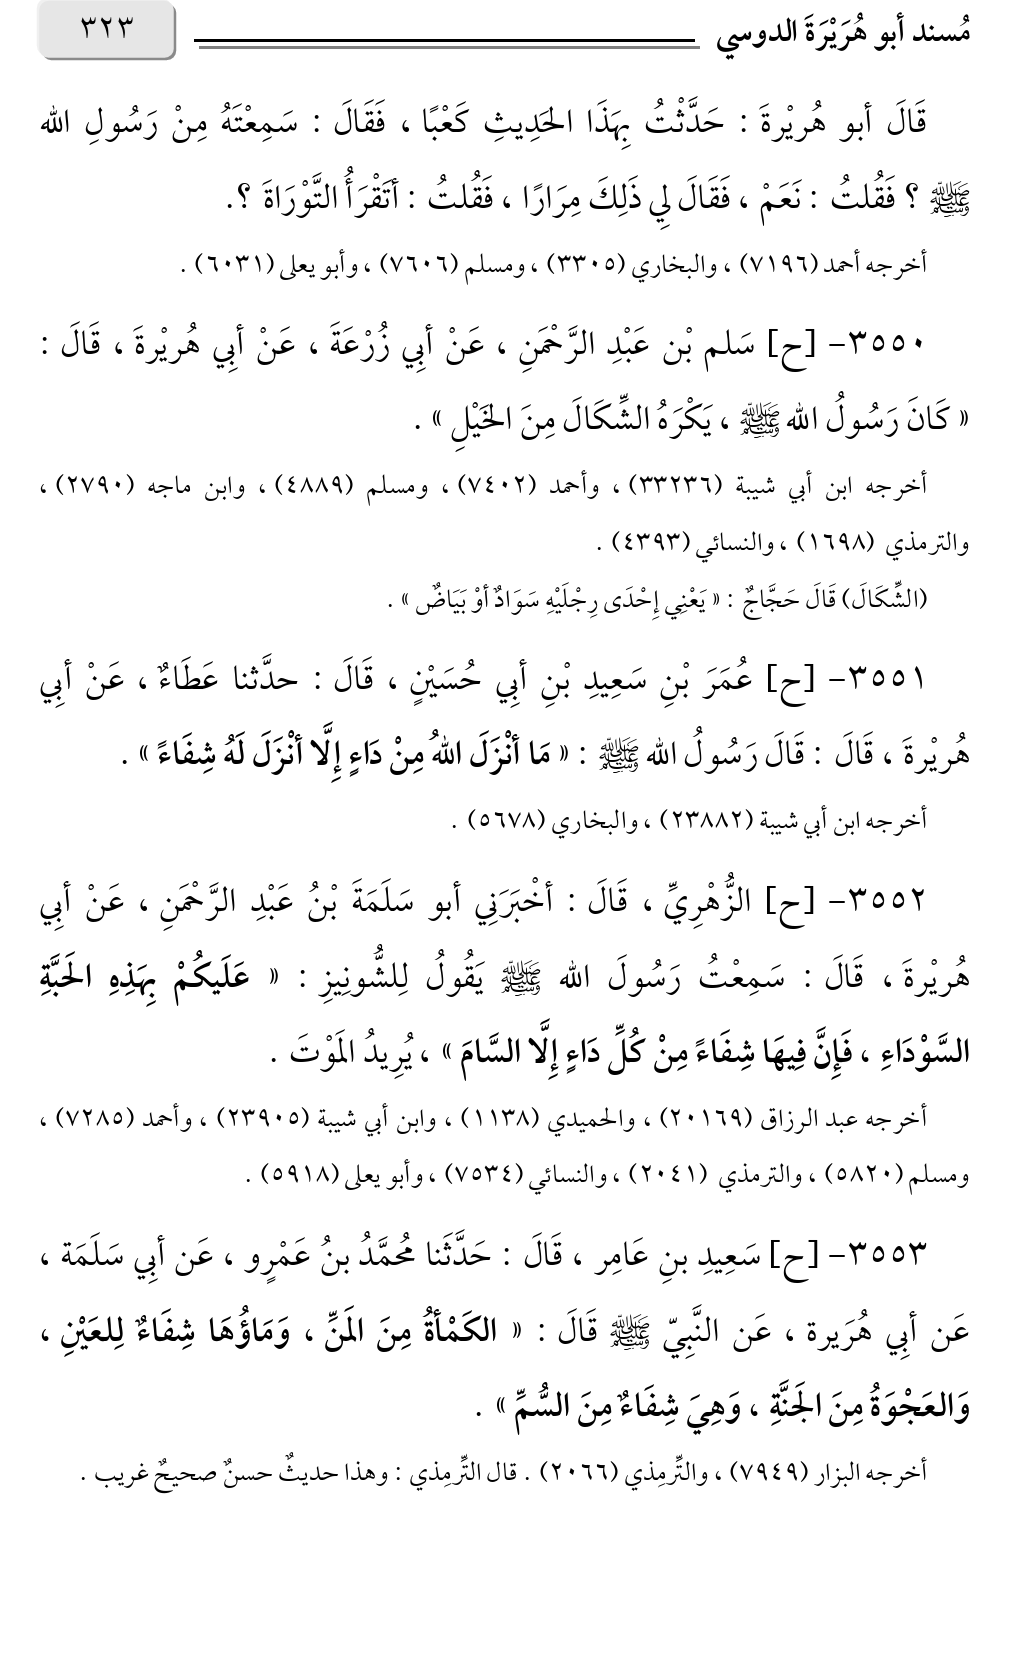 مُسند أبو هُرَيْرَةَ الدوسي ٣٢٣
قَالَ أبو هُريْرةَ : حَدَّثْتُ بِهَذَا الحَدِيثِ كَعْبًا ، فَقَالَ : سَمِعْتَهُ مِنْ رَسُولِ الله
ﷺ ؟ فَقُلتُ : نَعَمْ ، فَقَالَ لِي ذَلِكَ مِرَارًا ، فَقُلتُ : أتَقْرَأُ التَّوْرَاةَ ؟.
أخرجه أحمد (٧١٩٦) ، والبخاري (٣٣٠٥) ، ومسلم (٧٦٠٦) ، وأبو يعلى (٦٠٣١) .
٣٥٥٠- [ح] سَلم بْن عَبْدِ الرَّحْمَنِ ، عَنْ أبِي زُرْعَةَ ، عَنْ أبِي هُريْرةَ ، قَالَ :
« كَانَ رَسُولُ الله ﷺ ، يَكْرَهُ الشِّكَالَ مِنَ الخَيْلِ » .
أخرجه ابن أبي شيبة (٣٣٢٣٦) ، وأحمد (٧٤٠٢) ، ومسلم (٤٨٨٩) ، وابن ماجه (٢٧٩٠) ،
والترمذي (١٦٩٨) ، والنسائي (٤٣٩٣) .
(الشِّكَالَ) قَالَ حَجَّاجٌ : « يَعْنِي إِحْدَى رِجْلَيْهِ سَوَادٌ أوْ بَيَاضٌ » .
٣٥٥١- [ح] عُمَرَ بْنِ سَعِيدِ بْنِ أبِي حُسَيْنٍ ، قَالَ : حدَّثنا عَطَاءٌ ، عَنْ أبِي
هُريْرةَ ، قَالَ : قَالَ رَسُولُ الله ﷺ : « مَا أنْزَلَ اللهُ مِنْ دَاءٍ إِلَّا أنْزَلَ لَهُ شِفَاءً » .
أخرجه ابن أبي شيبة (٢٣٨٨٢) ، والبخاري (٥٦٧٨) .
٣٥٥٢- [ح] الزُّهْرِيِّ ، قَالَ : أخْبَرَنِي أبو سَلَمَةَ بْنُ عَبْدِ الرَّحْمَنِ ، عَنْ أبِي
هُريْرةَ ، قَالَ : سَمِعْتُ رَسُولَ الله ﷺ يَقُولُ لِلشُّونِيزِ : « عَلَيكُمْ بِهَذِهِ الحَبَّةِ
السَّوْدَاءِ ، فَإِنَّ فِيهَا شِفَاءً مِنْ كُلِّ دَاءٍ إِلَّا السَّامَ » ، يُرِيدُ المَوْتَ .
أخرجه عبد الرزاق (٢٠١٦٩) ، والحميدي (١١٣٨) ، وابن أبي شيبة (٢٣٩٠٥) ، وأحمد (٧٢٨٥) ،
ومسلم (٥٨٢٠) ، والترمذي (٢٠٤١) ، والنسائي (٧٥٣٤) ، وأبو يعلى (٥٩١٨) .
٣٥٥٣- [ح] سَعِيدِ بنِ عَامِر ، قَالَ : حَدَّثَنا مُحمَّدُ بنُ عَمْرٍو ، عَن أبِي سَلَمَة ،
عَن أبِي هُرَيرة ، عَن النَّبِيّ ﷺ قَالَ : « الكَمْأةُ مِنَ المَنِّ ، وَمَاؤُهَا شِفَاءٌ لِلعَيْنِ ،
وَالعَجْوَةُ مِنَ الجَنَّةِ ، وَهِيَ شِفَاءٌ مِنَ السُّمِّ » .
أخرجه البزار (٧٩٤٩) ، والتِّرمِذي (٢٠٦٦) . قال التِّرمِذي : وهذا حديثٌ حسنٌ صحيحٌ غريب .